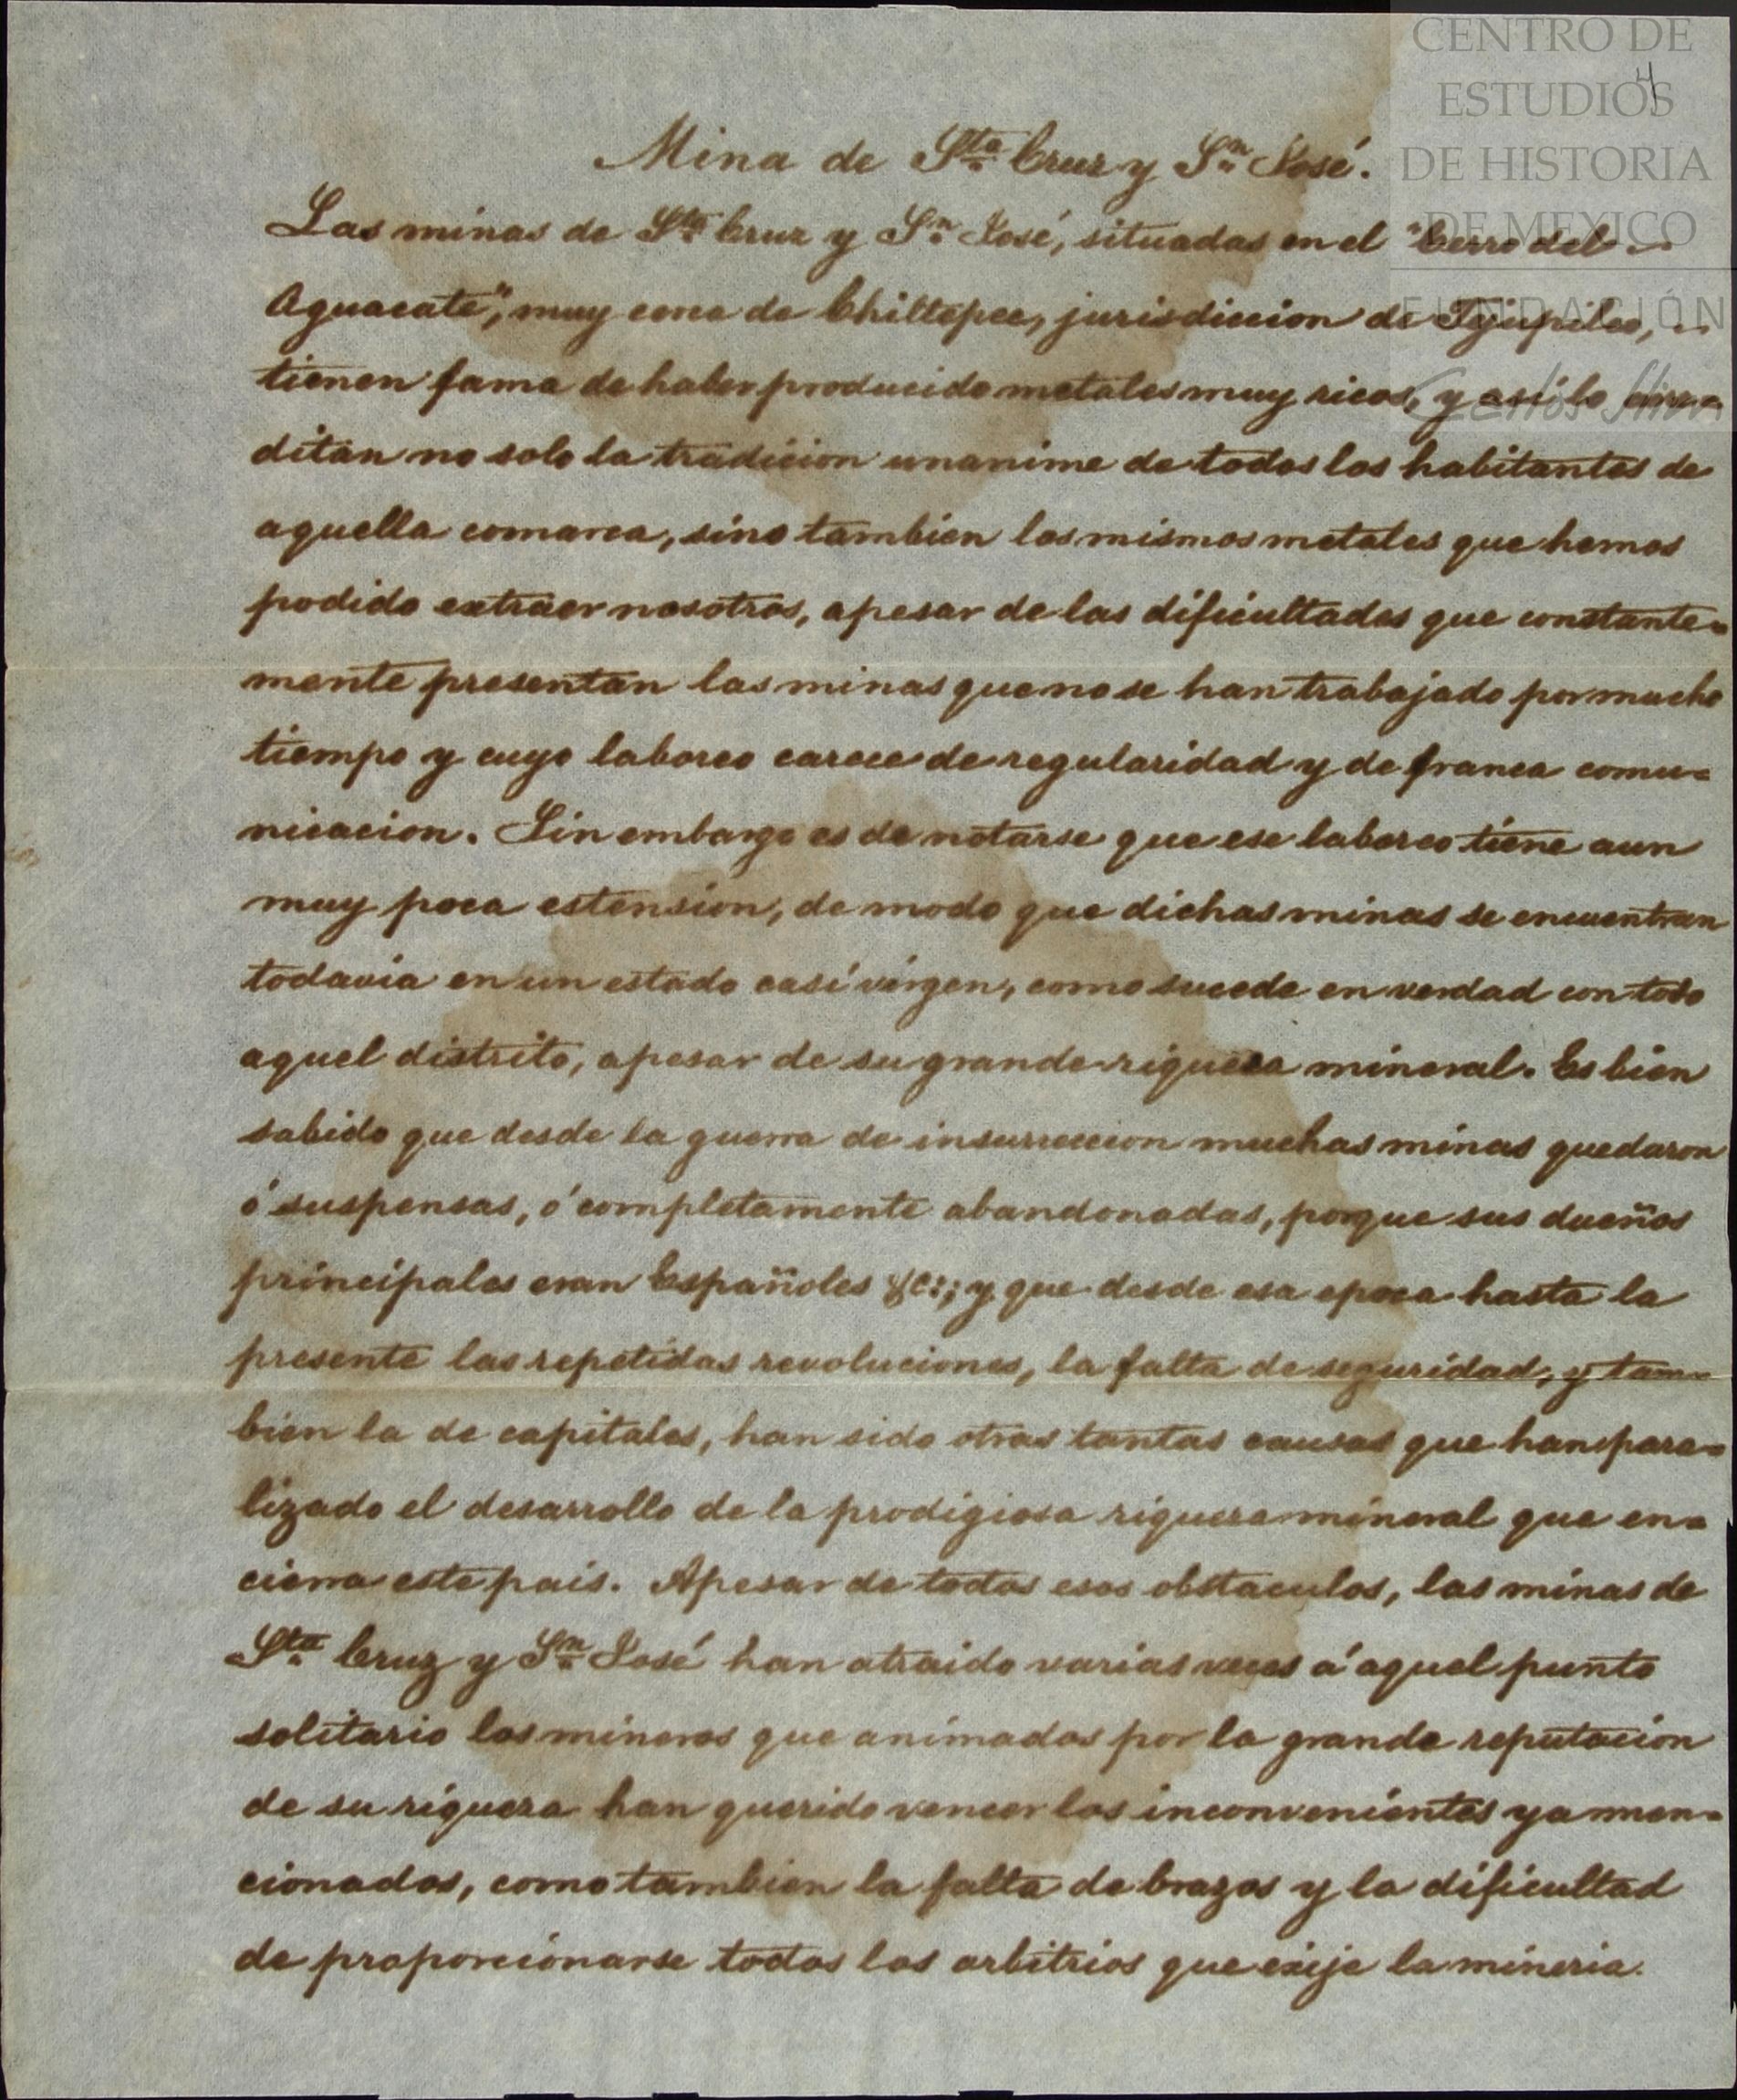 CENTRO DE
ESTUDIOS
DE HISTORIA
DE MEXICO
FUNDACIÓN
4
Mina de Sta Cruz y Sn José.
Las minas de Sta Cruz y Sn José, situadas en el "Cerro del
Aguacate", muy cerca de Chiltepec, jurisdiccion de Tejupilco,
tienen fama de haber producido metales muy ricos, y asi lo acre-
ditan no solo la tradicion unanime de todos los habitantes de
aquella comarca, sino tambien los mismos metales que hemos
podido extraer nosotros, apesar de las dificultades que constante-
mente presentan las minas que no se han trabajado por mucho
tiempo y cuyo laboreo carece de regularidad y de franca comu-
nicacion. Sin embargo es de notarse que ese laboreo tiene aun
muy poca estension, de modo que dichas minas se encuentran
todavia en un estado casi vírgen, como sucede en verdad con todo
aquel distrito, apesar de su grande riqueza mineral. Es bien
sabido que desde la guerra de insurreccion muchas minas quedaron
ó suspensas, ó completamente abandonadas, porque sus dueños
principales eran Españoles &c; y que desde esa epoca hasta la
presente las repetidas revoluciones, la falta de seguridad, y tam-
bien la de capitales, han sido otras tantas causas que han para-
lizado el desarrollo de la prodigiosa riqueza mineral que en-
cierra este pais. Apesar de todos esos obstaculos, las minas de
Sta Cruz y Sn José han atraido varias veces á aquel punto
solitario los mineros que animados por la grande reputacion
de su riqueza han querido vencer los inconvenientes ya men-
cionados, como tambien la falta de brazos y la dificultad
de proporcionarse todos los arbitrios que exije la mineria.